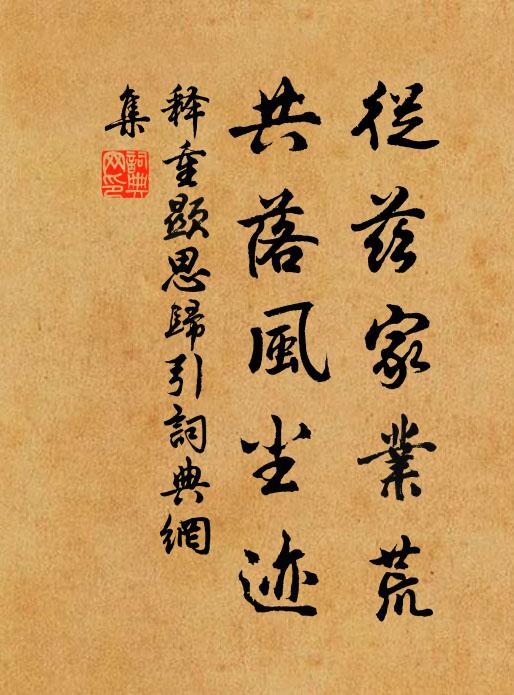 從茲家業荒
共落風尘迹
释重顯思歸引詞典網
集
詞典
网印